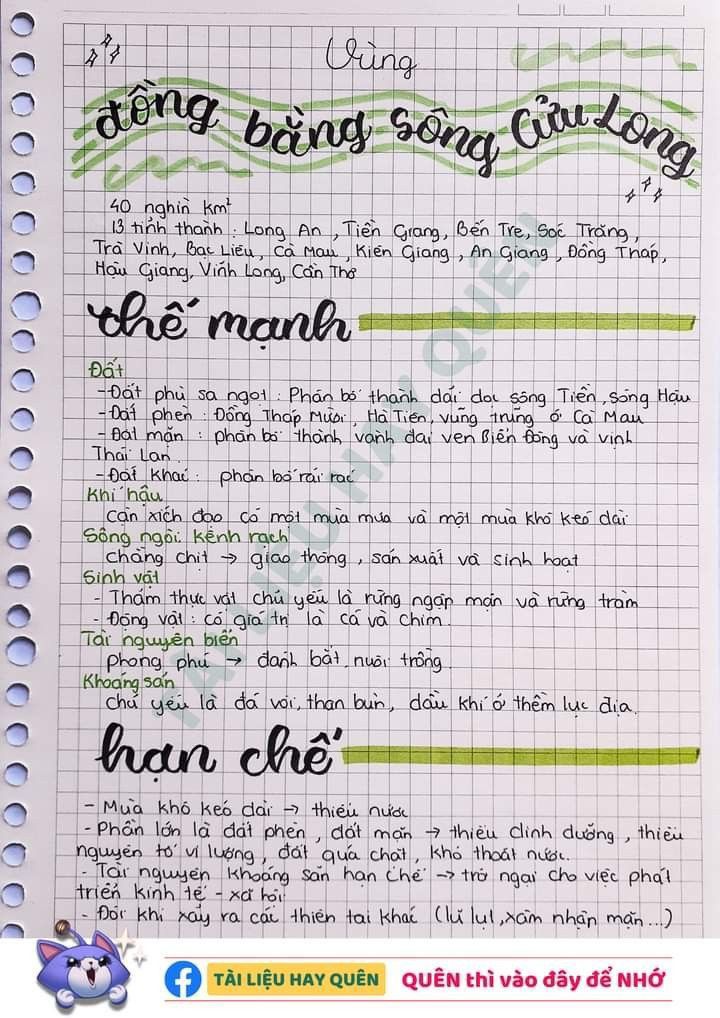 Vùng
đồng bằng sông Cửu Long
40 nghìn km²
13 tỉnh thành : Long An , Tiền Giang, Bến Tre, Sóc Trăng ,
Trà Vinh, Bạc Liêu , Cà Mau , Kiên Giang , An Giang , Đồng Tháp,
Hậu Giang, Vĩnh Long, Cần Thơ
thế mạnh
Đất
-Đất phù sa ngọt : Phân bố thành dải dọc sông Tiền , sông Hậu
-Đất phèn : Đồng Tháp Mười , Hà Tiên, vùng trũng ở Cà Mau
-Đất mặn : phân bố thành vành đai ven Biển Đông và vịnh
Thái Lan.
-Đất khác : phân bố rải rác
Khí hậu
Cận xích đạo có một mùa mưa và một mùa khô kéo dài
Sông ngòi. kênh rạch
Chằng chịt → giao thông , sản xuất và sinh hoạt
Sinh vật
- Thảm thực vật chủ yếu là rừng ngập mặn và rừng tràm
- Động vật : có giá trị là cá và chim.
Tài nguyên biển
phong phú → đánh bắt, nuôi trồng.
Khoáng sản
chủ yếu là đá vôi, than bùn, dầu khí ở thềm lục địa.
hạn chế
- Mùa khô kéo dài → thiếu nước
- Phần lớn là đất phèn , đất mặn → thiếu dinh dưỡng , thiếu
nguyên tố vi lượng , đất quá chặt, khó thoát nước.
- Tài nguyên khoáng sản hạn chế → trở ngại cho việc phát
triển kinh tế - xã hội
- Đôi khi xảy ra các thiên tai khác (lũ lụt, xâm nhập mặn...)
TÀI LIỆU HAY QUÊN
TÀI LIỆU HAY QUÊN
QUÊN thì vào đây để NHỚ